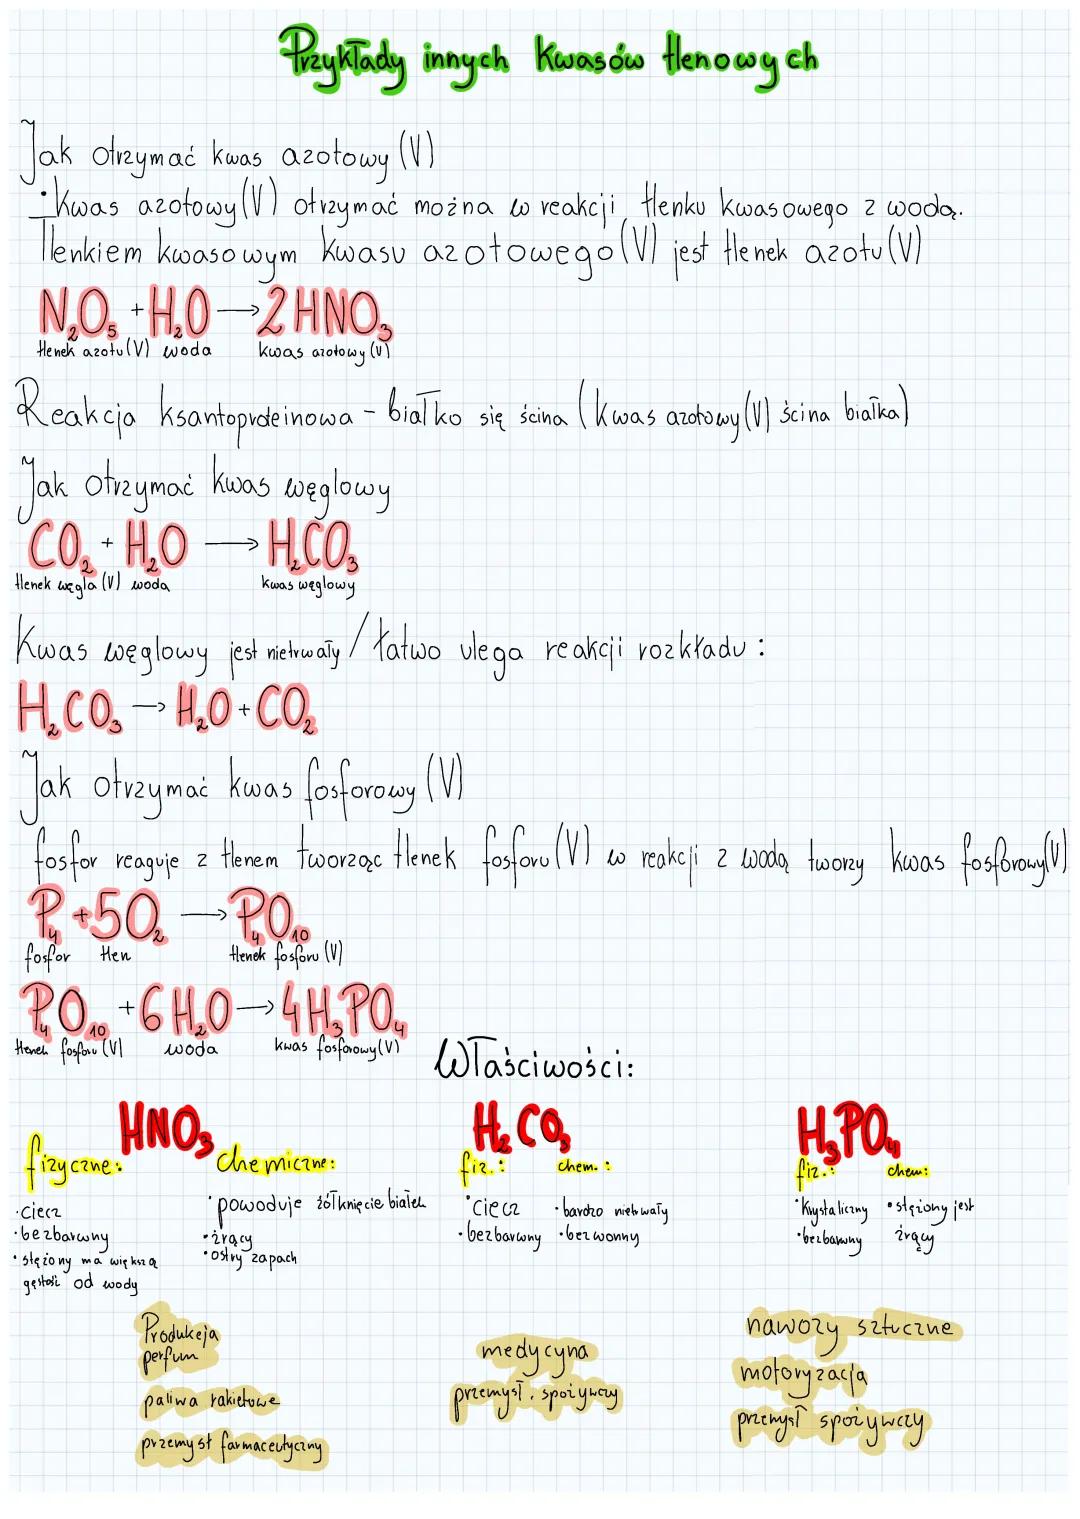 Przykłady innych kwasów tlenowych
Jak otrzymać kwas azotowy (V)
• Kwas azotowy (V) otrzymać można w reakcji tlenku kwasowego z wodą.
Tlenkiem kwasowym kwasu azotowego (V) jest tlenek azotu (V)
N₂O₅ + H₂O → 2HNO₃
tlenek azotu (V) woda kwas azotowy (V)
Reakcja ksantoproteinowa - białko się ścina (kwas azotowy (V) ścina białka)
Jak otrzymać kwas węglowy
CO₂ + H₂O → H₂CO₃
tlenek węgla (V) woda kwas węglowy
Kwas węglowy jest nietrwały / łatwo ulega reakcji rozkładu:
H₂CO₃ → H₂O + CO₂
Jak otrzymać kwas fosforowy (V)
fosfor reaguje z tlenem tworząc tlenek fosforu (V) w reakcji z wodą tworzy kwas fosforowy (V)
P₄ + 5O₂ → P₄O₁₀
fosfor tlen tlenek fosforu (V)
P₄O₁₀ + 6H₂O → 4H₃PO₄
tlenek fosforu (V) woda kwas fosforowy (V)
Właściwości:
HNO₃
fizyczne:
• ciecz
• bezbarwny
• stężony ma większą
gęstość od wody
chemiczne:
• powoduje żółknięcie białek
• żrący
• ostry zapach
Produkcja
perfum
paliwa rakietowe
przemysł farmaceutyczny
H₂CO₃
fiz.:
• ciecz
• bezbarwny
chem.:
• bardzo nietrwały
• bezwonny
medycyna
przemysł. spożywczy
H₃PO₄
fiz.:
• krystaliczny
• bezbarwny
chem:
• stężony jest
żrący
nawozy sztuczne
motoryzacja
przemysł spożywczy